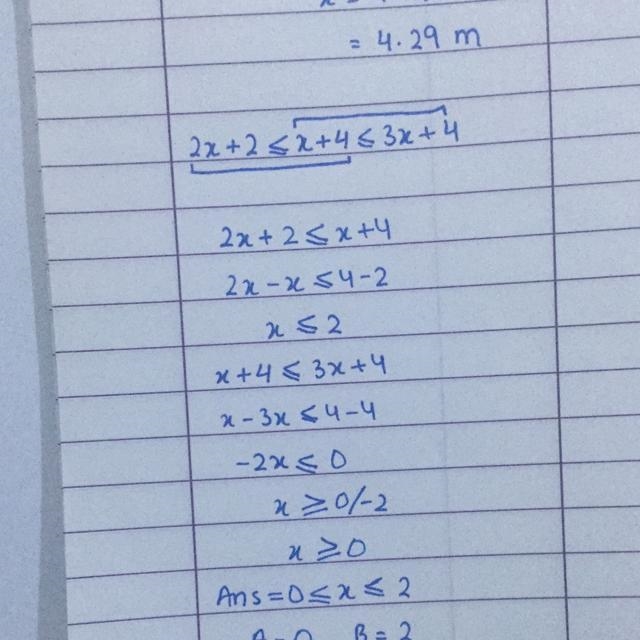 = 4.29 m
2x+2 ≤ x+4 ≤ 3x+4
2x+2 ≤ x+4
2x-x ≤ 4-2
x ≤ 2
x+4 ≤ 3x+4
x-3x ≤ 4-4
-2x ≤ 0
x ≥ 0/-2
x ≥ 0
Ans = 0 ≤ x ≤ 2
A=0 B=2